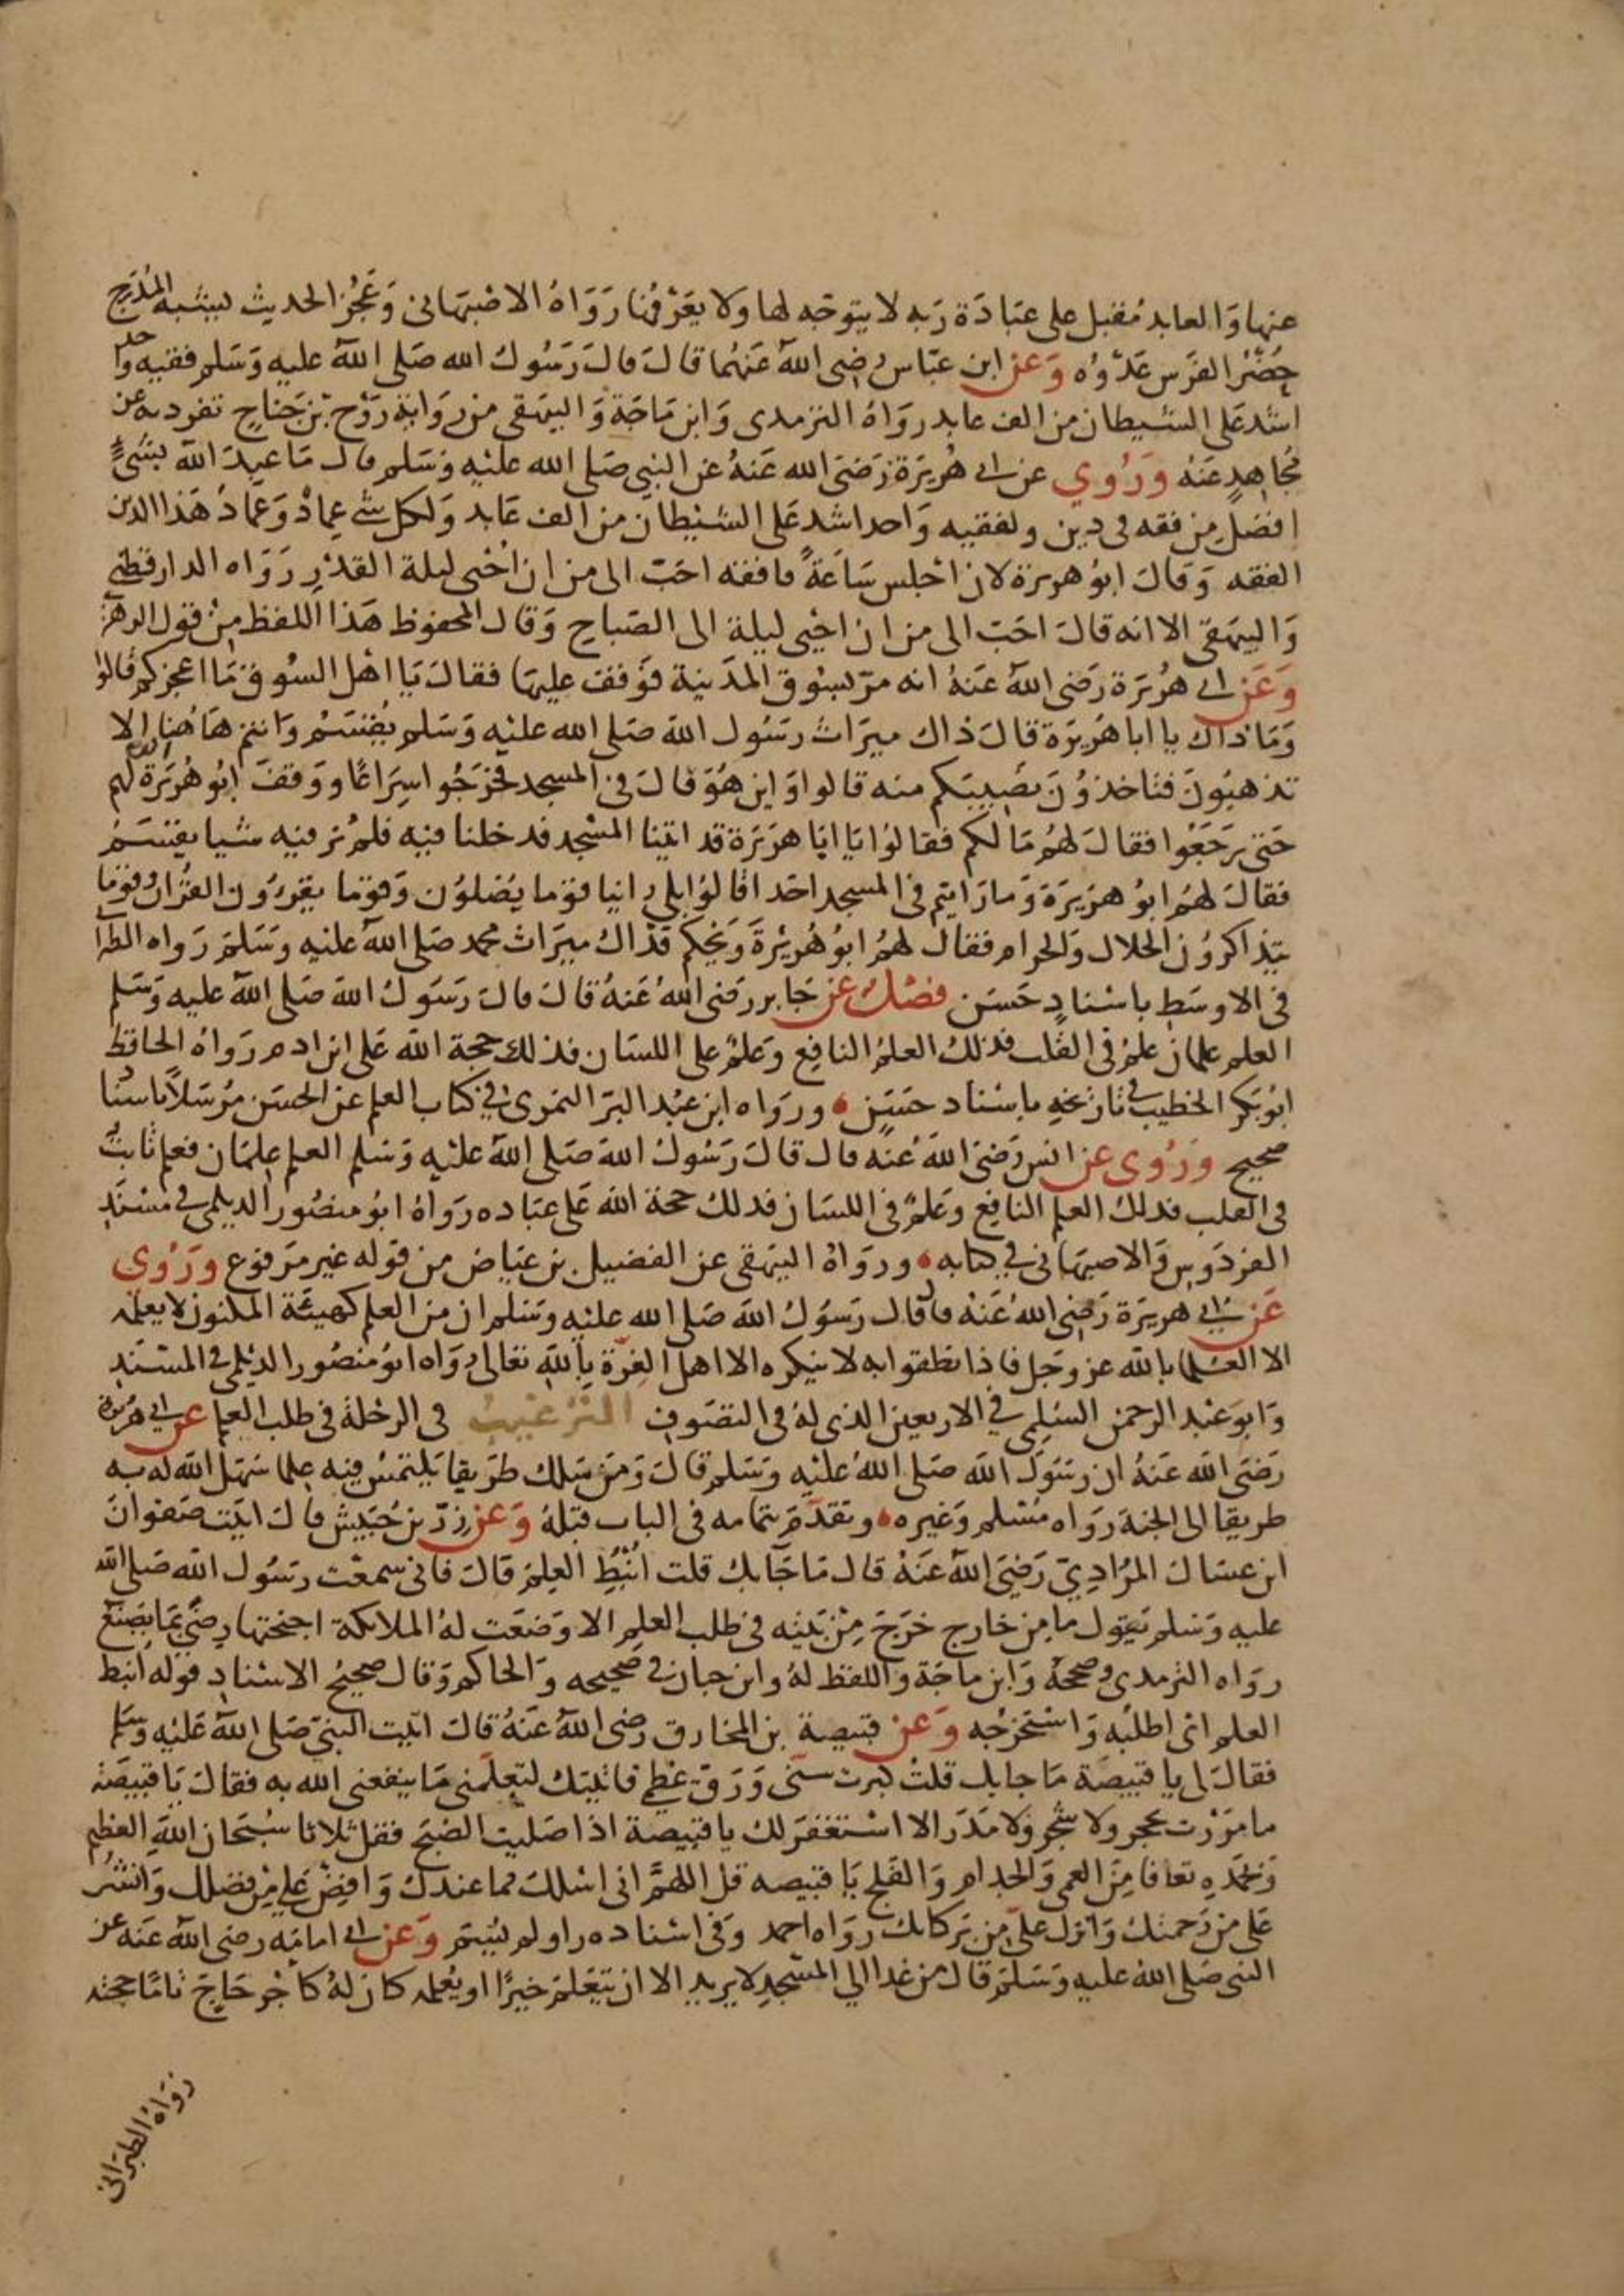 عنها وَالعابد مُقبل على عبَادَة رَبه لا يتوجّه لها وَلا يعَرْفُهَا رَوَاهُ الاصْبهَانى وَعَجُزُ الحديث يشبه المُدْرَج
حُضْرُ الفَرَس عَدْوُه وَعَن ابن عبّاس رضى اللهُ عَنهُما قالَ قالَ رَسُولُ الله صَلى اللهُ عليه وَسَلم فقيه واحد
اشدعَلى الشيطان من الف عابد روَاهُ الترمذى وَابن مَاجَة وَالبيهقى من روَاية رَوْح بْن جَناحٍ تفرد به عن
مُجَاهِدٍ عَنهُ وَرُوِي عن ابى هُريرَة رَضىَ الله عَنهُ عن النبى صَلى الله عليْهِ وَسَلم قال مَا عبِدَ اللهُ بشىٍْ
افضلَ من فقه فى دين ولفقيه وَاحد اشد عَلى الشيْطان من الف عَابد وَلكل شئ عِمادٌ وَعمادُ هَذا الدين
الفقه وَقالَ ابوُ هريرة لان اجْلس سَاعَةً فافقه احَبّ الى من ان اُحْيى ليلة القدْرِ رَوَاه الدارقطنى
وَالبيهقى الا انه قالَ احَبّ الى من ان احْيى ليلة الى الصّباح وَقال المحفوظ هَذا اللفظ مِنْ قول الزهرى
وَعَن ابى هُريَرة رَضى اللهُ عَنهُ انه مَرّ بسُوق المدَينة فوَقفَ عليهَا فقالَ يَا اهْل السُوق مَا اعجزكم قالوا
وَمَا ذاك يا ابا هُريرَة قالَ ذاك ميرَاثُ رسَول الله صَلى الله عليْه وَسَلم يُقتسَمُ وَانتم هَاهُنا الا
تذهبُونَ فتاخذوُنَ نصَيبكم منه قالوا وَاين هُوَ قالَ فى المسجد فخرَجُوا سِرَاعًا وَوَقفَ ابُو هُريَرَة لهم
حَتى رَجَعُوا فقالَ لهُم مَا لكم فقالوُا يَا ابَا هرَيرَة قد اتينا المسْجد فدخلنا فيه فلم نر فيه شيا يقتسَمُ
فقالَ لهُم ابوُ هرَيرَةَ وَمارَايتم فى المسجد احَدا قالوُا بلى راينا قوَما يُصَلوُن وَقوَما يقرَؤن القرُان وقوَما
يتذاكرُون الحلال وَالحرام فقال لهُمُ ابوُ هُريْرةَ وَيْحكم فذَاكَ ميرَاث محمد صَلى اللهُ عليْه وَسَلمَ رَواه الطبرا
فى الاوسَطِ باسْنادٍ حَسَن فصْلٌ عن جَابر رَضى اللهُ عَنهُ قالَ قالَ رَسَول الله صَلى اللهُ عليه وَسَلم
العلم علمان علمٌ فى القلب فذلكَ العلمُ النافِع وَعلمٌ على اللسَان فذلك حجة الله عَلى ابن ادم رَوَاهُ الحافظ
ابوُ بَكر الخطيبُ فى تاريخهِ باسْناد حَسَنٍ وروَاه ابن عبْد البرّ النمرى فى كتاب العلم عن الحسَن مُرسَلاً باسْنا
صحيح وَرُوى عَن انس رَضىَ اللهُ عَنه قالَ قالَ رَسُولُ اللهِ صَلى اللهُ عليْه وَسَلم العلم علمَان فعلم ثابتٌ
فى القلب فذلك العلم النافِع وَعلمٌ فى اللسَان فذلكَ حجَة الله عَلى عبَاده رَوَاهُ ابوُ منصُور الديلمى فى مسْنَدِ
الفرَدوس وَالاصبهَانى فى كتابه وروَاهُ البيَهقى عن الفضيل بن عيَاض من قوله غير مَرفوع وَرُوِي
عَن ابى هريرَة رَضى اللهُ عَنهُ قالَ قالَ رَسوُلُ اللهِ صَلى الله عليْه وَسَلم ان من العلم كهيئة المكنون لا يعلمه
الا العُلما بالله عز وجَل فاذا نطقوا به لا ينكره الا اهل الغِرّة بِاللهِ تعَالى رَوَاه ابوُ منصُور الديلمى فى المسْنَدِ
وَابو عَبْد الرحمن السُلمِى فى الاربعين الذى لهُ فى التصَوفِ التَّرْغيبُ فى الرحْلةُ فى طلب العلم عَن ابى هريرة
رَضىَ الله عَنهُ ان رسَولَ الله صَلى اللهُ عليْه وَسَلم قالَ وَمَن سَلك طرَيقا يَلتمسُ فيه علما سَهَّل الله له به
طريقا الى الجنة رَواه مُسْلم وَغيره وتقدّمَ بتمامه فى الباب قبْلهُ وَعَن زرّ بن حُبَيش قالَ اتيَت صَفوَانَ
ابن عسَال المرُادِيّ رَضيَ اللهُ عَنهُ قال مَا جَا بك قلت اُنْبُط العِلمَ قالَ فانى سمعْت رسَوُل الله صَلى الله
عليه وَسَلم يَقول ما مِن خارج خرَجَ مِنْ بَيْته فى طلب العلم الا وَضعَت لهُ الملائكة اجنحتها رِضًى بمَا يصَنع
روَاه الترمذى وصَححَهُ وَابن ماجَة وَاللفظ لهُ وابن حبان فى صحيحه وَالحاكم وَقال صحيح الاسْنادِ قوله انبط
العلم اى اطلبُه وَاستْخرجُه وَعَن قبيصة بن المخارق رضى اللهُ عَنهُ قالَ اتيت النبىّ صَلى اللهُ عَليْه وسَلم
فقالَ لى يا قبيصَة مَا جا بك قلتُ كبرت سنّى وَرَقّ عَظمِى فاتيتك لتعلّمنى مَا ينفعنى الله به فقالَ يَا قبيصَة
ما مَرَرْت بحجر ولا شجَر وَلا مَدَر الا استغفرَ لك يا قبيصة اذا صَليت الصُبْحَ فقل ثلاثا سُبْحَان اللهِ العظيم
وَبحمَدِه تعافا مِنَ العمى وَالجذام وَالفلج يَا قبيصه قل اللهُمَّ انى اسْلك مما عندكَ وَافِضْ عَليَّ مِنْ فضلك وَانشُرْ
عَلى من رَحمتك وَانزل علىّ من بَرَكاتك رَوَاه احمد وَفى اسْناده راو لم يُسَمّ وَعَن ابى امامَه رضى اللهُ عَنه عن
النبى صَلى اللهُ عليه وَسَلمَ قالَ من غدا الى المسْجدِ لا يريد الا ان يتعَلمَ خيرًا او يُعلمه كانَ لهُ كاجْر حَاجّ تامًّا حجته
رَوَاهُ الطبرَانى